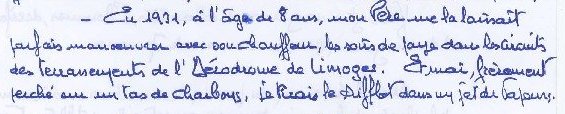 - En 1931, à l'âge de 8 ans, mon Père me la laissait
parfois manoeuvrer avec son chauffeur, les soirs de paye dans les circuits
des terrassements de l'Aérodrome de Limoges. Et moi, fièrement
perché sur un tas de charbons, je tirais le sifflet dans un jet de vapeurs.